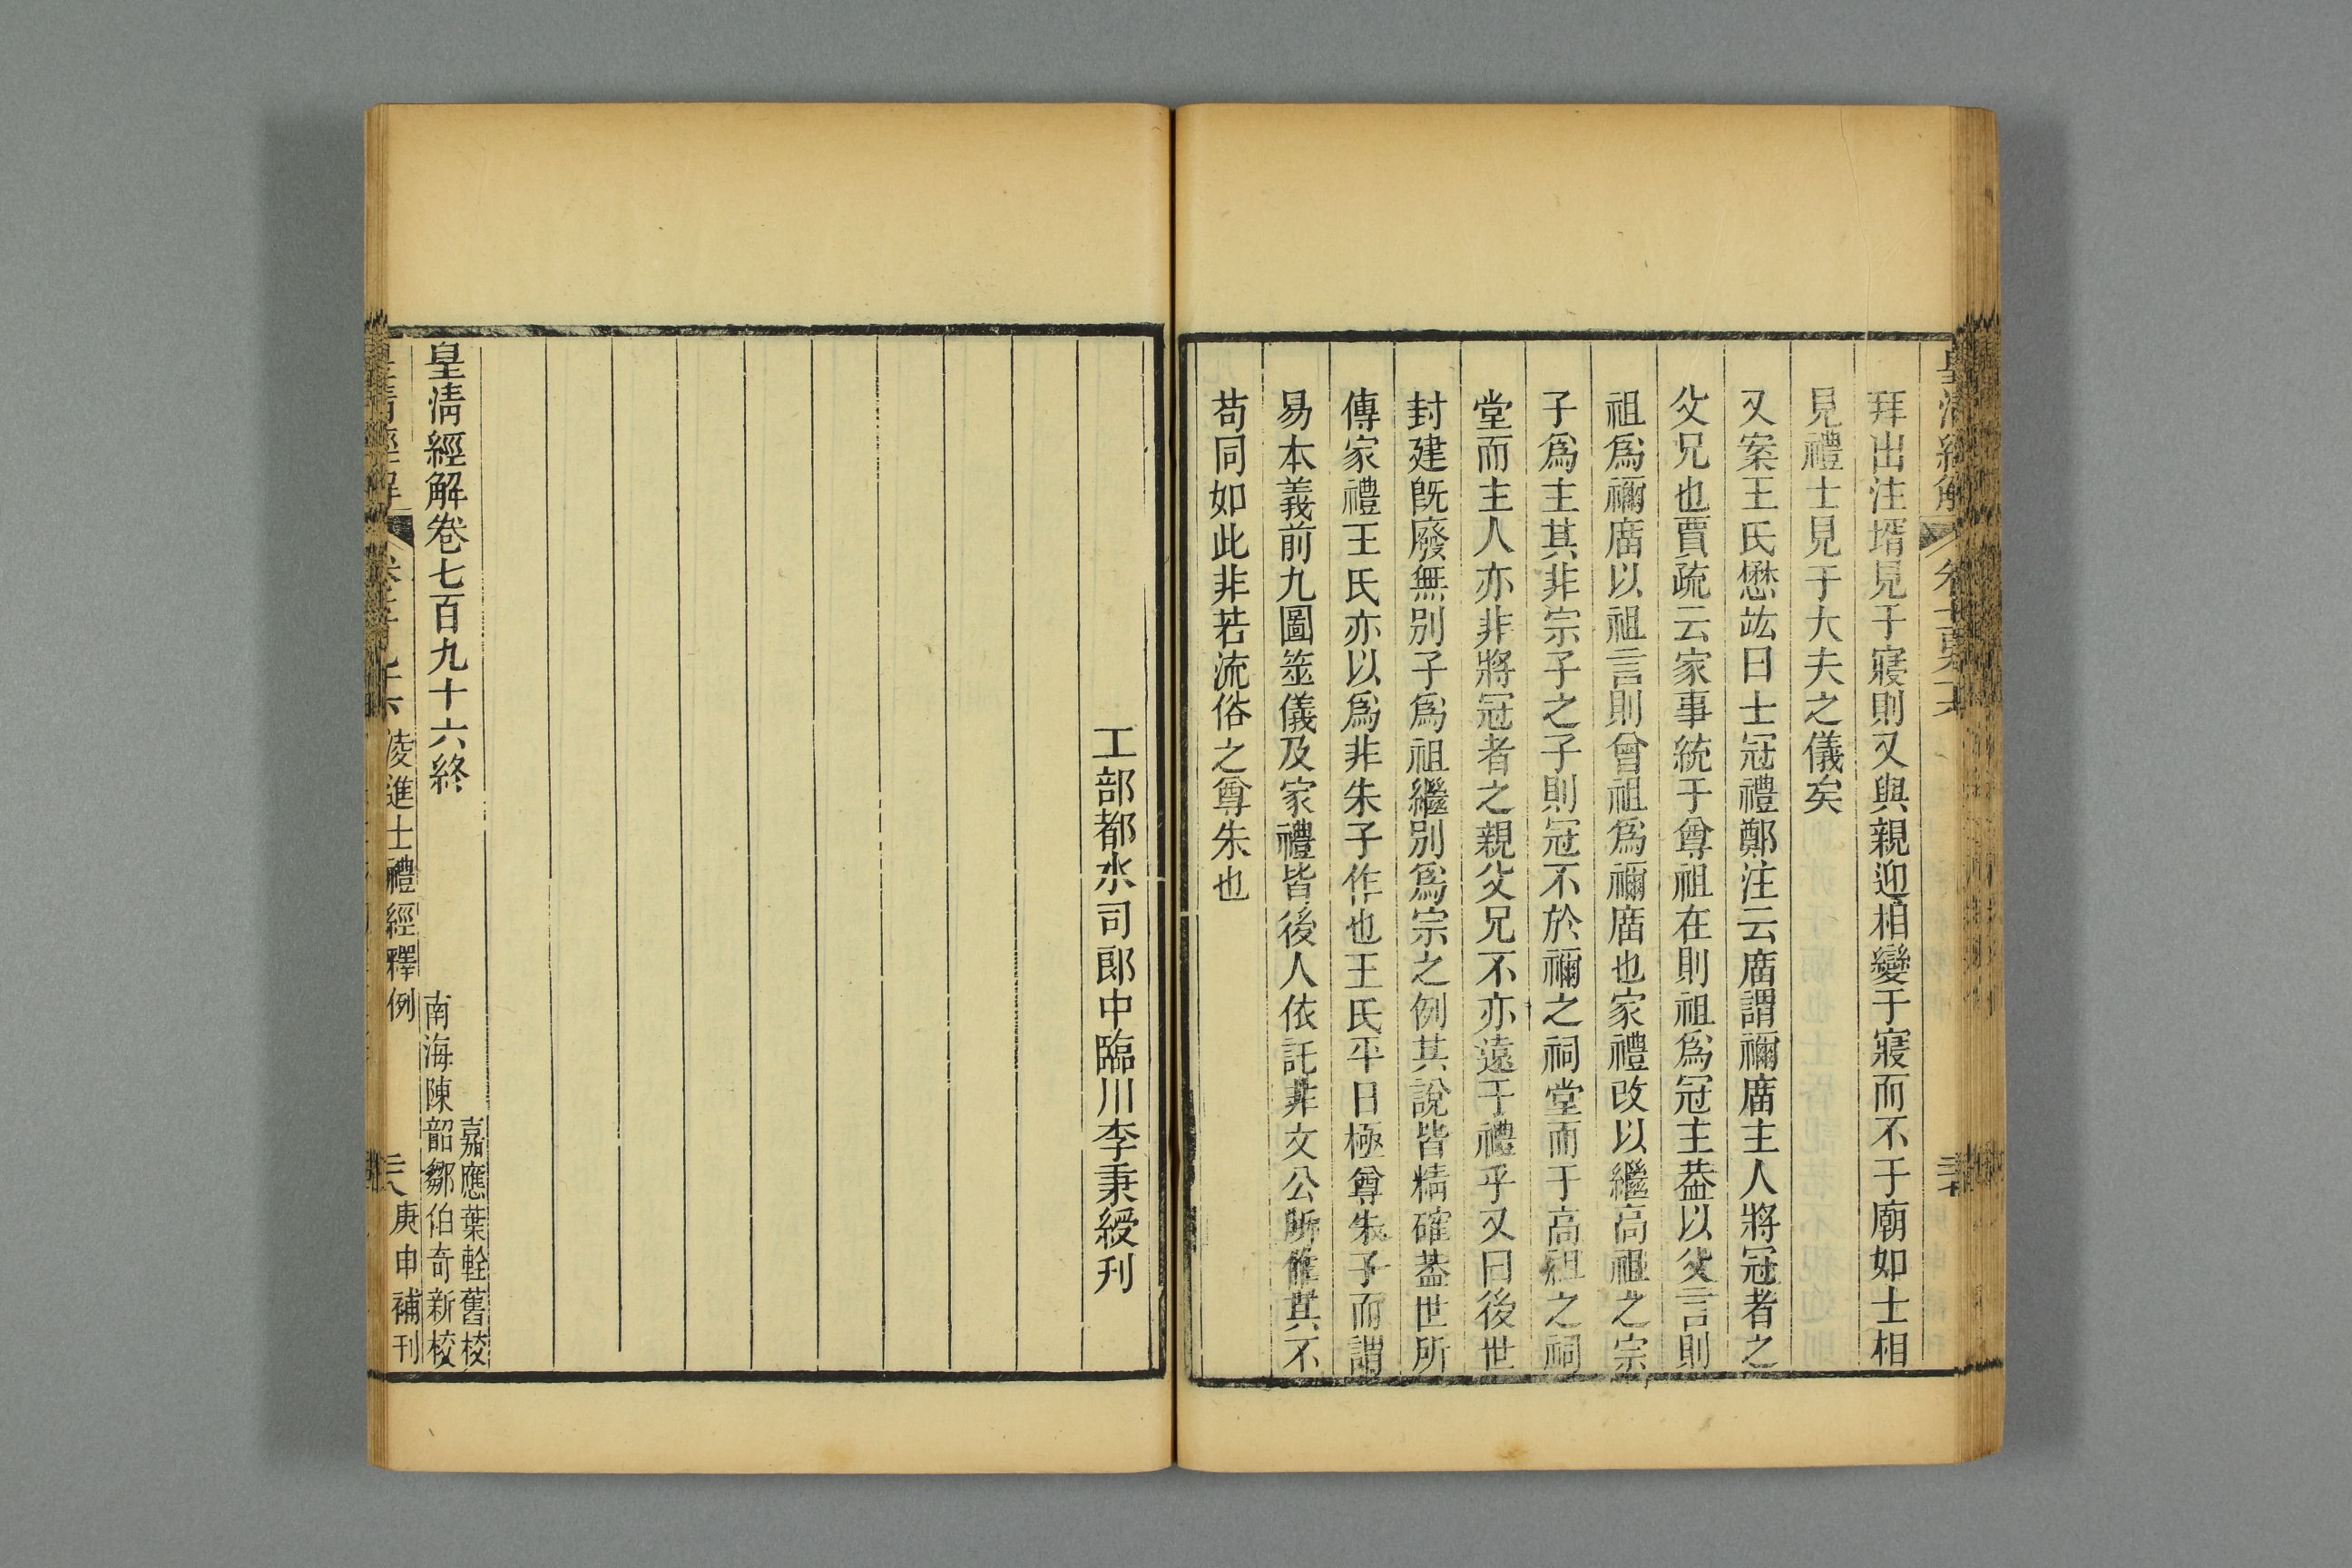 拜出注壻見于寢則又與親迎相變于寢而不于廟如士相
見禮士見于大夫之儀矣
又案王氏懋竑曰士冠禮鄭注云廟謂禰廟主人將冠者之
父兄也賈疏云家事統于尊祖在則祖爲冠主葢以父言則
祖爲禰廟以祖言則曾祖爲禰廟也家禮改以繼高祖之宗
子爲主其非宗子之子則冠不於禰之祠堂而于高祖之祠
堂而主人亦非將冠者之親父兄不亦遠于禮乎又曰後世
封建旣廢無別子爲祖繼別爲宗之例其說皆精確葢世所
傳家禮王氏亦以爲非朱子作也王氏平日極尊朱子而謂
易本義前九圖筮儀及家禮皆後人依託非文公所作其不
苟同如此非若流俗之尊朱也
工部都水司郎中臨川李秉綬刊
皇淸經解卷七百九十六終
嘉應葉輇舊校
南海陳韶鄒伯奇新校
皇淸經解
凌進士禮經釋例
庚申補刊